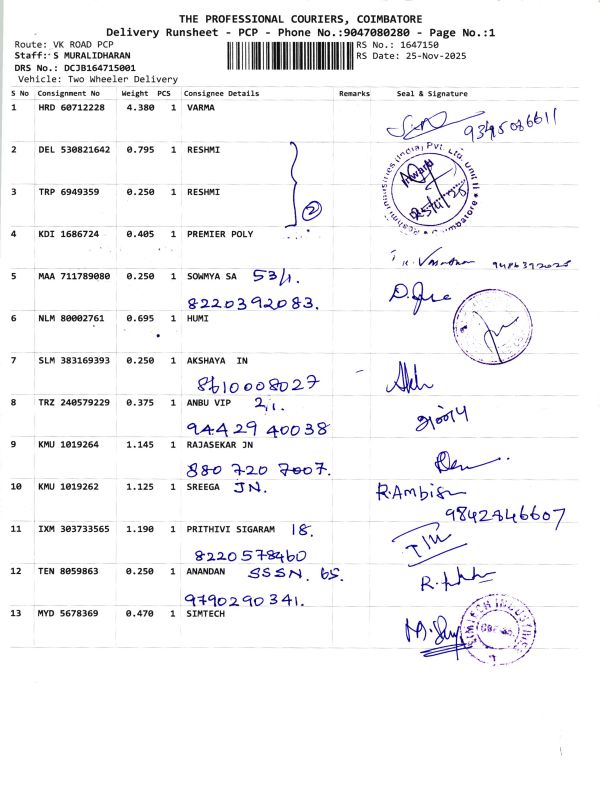 THE PROFESSIONAL COURIERS, COIMBATORE
Delivery Runsheet - PCP - Phone No.:9047080280 - Page No.:1
Route: VK ROAD PCP RS No.: 1647150
Staff: S MURALIDHARAN RS Date: 25-Nov-2025
DRS No.: DCJB164715001
Vehicle: Two Wheeler Delivery
S No Consignment No Weight PCS Consignee Details Remarks Seal & Signature
1 HRD 60712228 4.380 1 VARMA
9345086611
2 DEL 530821642 0.795 1 RESHMI
3 TRP 6949359 0.250 1 RESHMI
2
4 KDI 1686724 0.405 1 PREMIER POLY
5 MAA 711789080 0.250 1 SOWMYA SA 53/1.
8220392083.
6 NLM 80002761 0.695 1 HUMI
7 SLM 383169393 0.250 1 AKSHAYA IN
8610008027
8 TRZ 240579229 0.375 1 ANBU VIP 2,1.
94429 40038
9 KMU 1019264 1.145 1 RAJASEKAR JN
880 720 7007.
10 KMU 1019262 1.125 1 SREEGA JN. R.Ambika
9842846607
11 IXM 303733565 1.190 1 PRITHIVI SIGARAM 18.
8220578460
12 TEN 8059863 0.250 1 ANANDAN SSSN. 65.
9790290341.
13 MYD 5678369 0.470 1 SIMTECH
SIMTECH INDUSTRIES